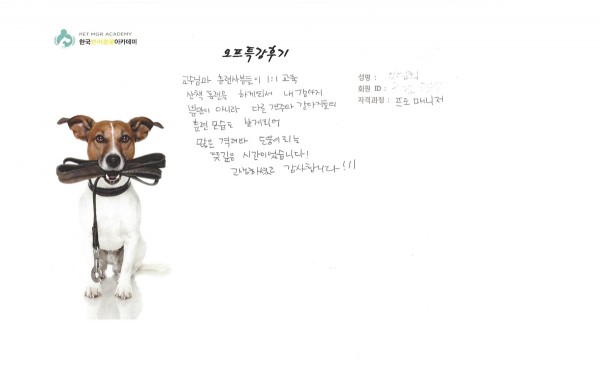 PET MGR ACADEMY
한국반려동물아카데미
오프특강후기
교수님과 훈련사분들이 1:1 교육
산책 훈련을 하게되서 내 강아지
뿐만이 아니라 다른 견주와 강아지들의
훈련 모습도 보게되어
많은 격려와 도움이 되는
뜻깊은 시간이었습니다!
고생하셨고 감사합니다!!!
성명 :
회원 ID :
자격과정 : 프로 매니저